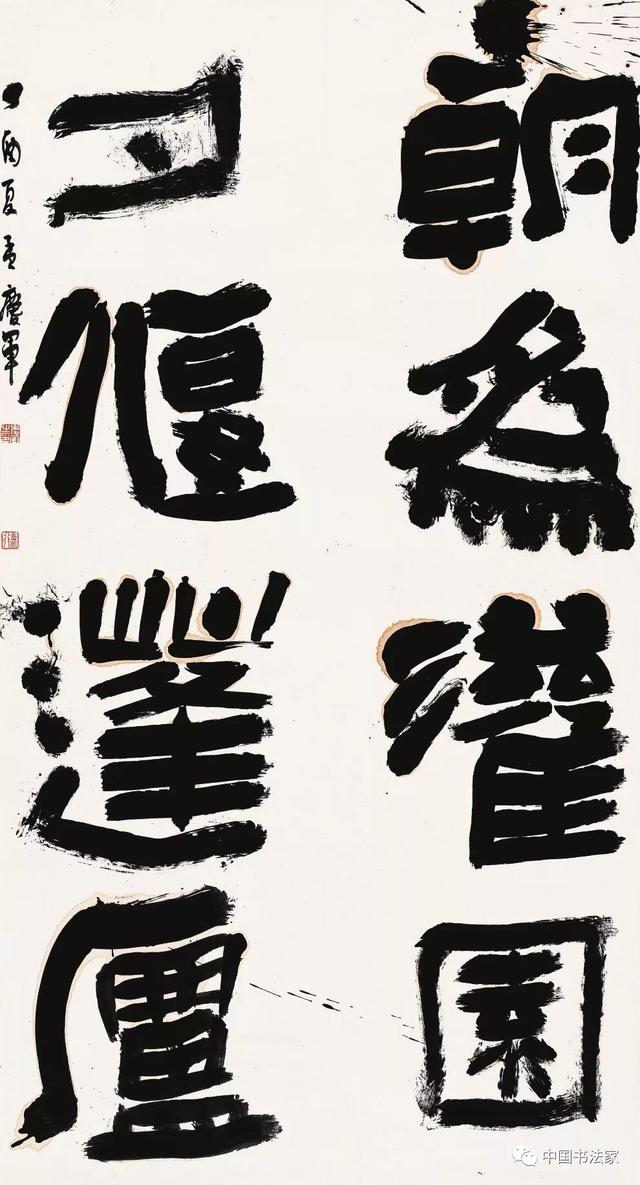 朝為灌園
夕偃蓬廬
丁酉夏 孟慶軍
中国书法家